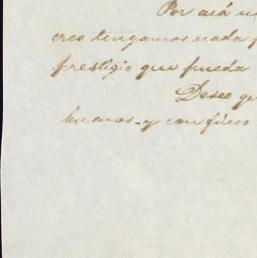 Por acá
creo tengamos nada
prestigio que pueda
Deseo
buenos y con